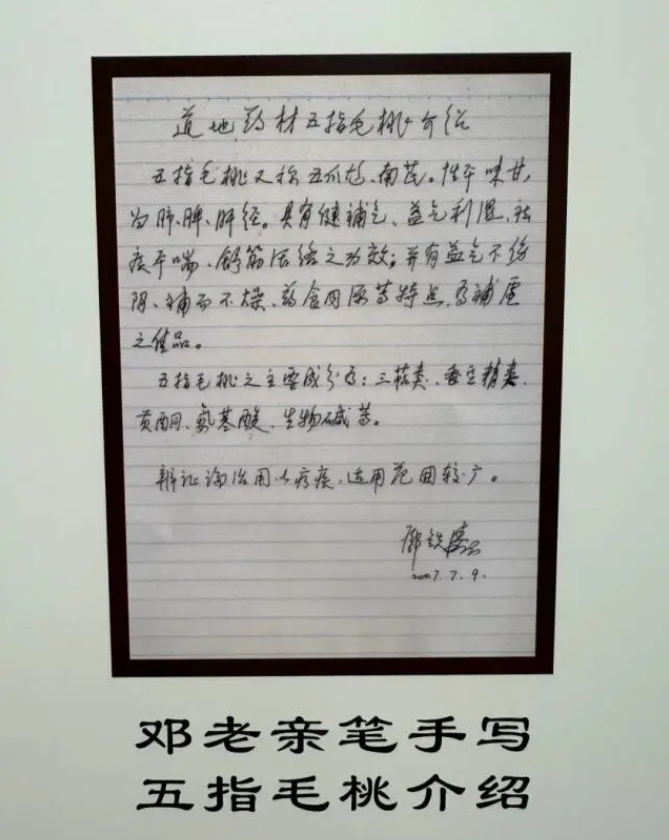 道地药材五指毛桃介绍
五指毛桃又称五爪龙、南芪。性平味甘,
为肺、脾、肝经。具有健补气、益气利湿、祛
痰平喘、舒筋活络之功效;并有益气不伤
阴、补而不燥、药食同源等特点,为补虚
之佳品。
五指毛桃之主要成分为:三萜类、香豆精类、
黄酮、氨基酸、生物碱等。
辨证论治用以疗疾,适用范围较广。
邓铁涛
2007.7.9.
邓老亲笔手写
五指毛桃介绍